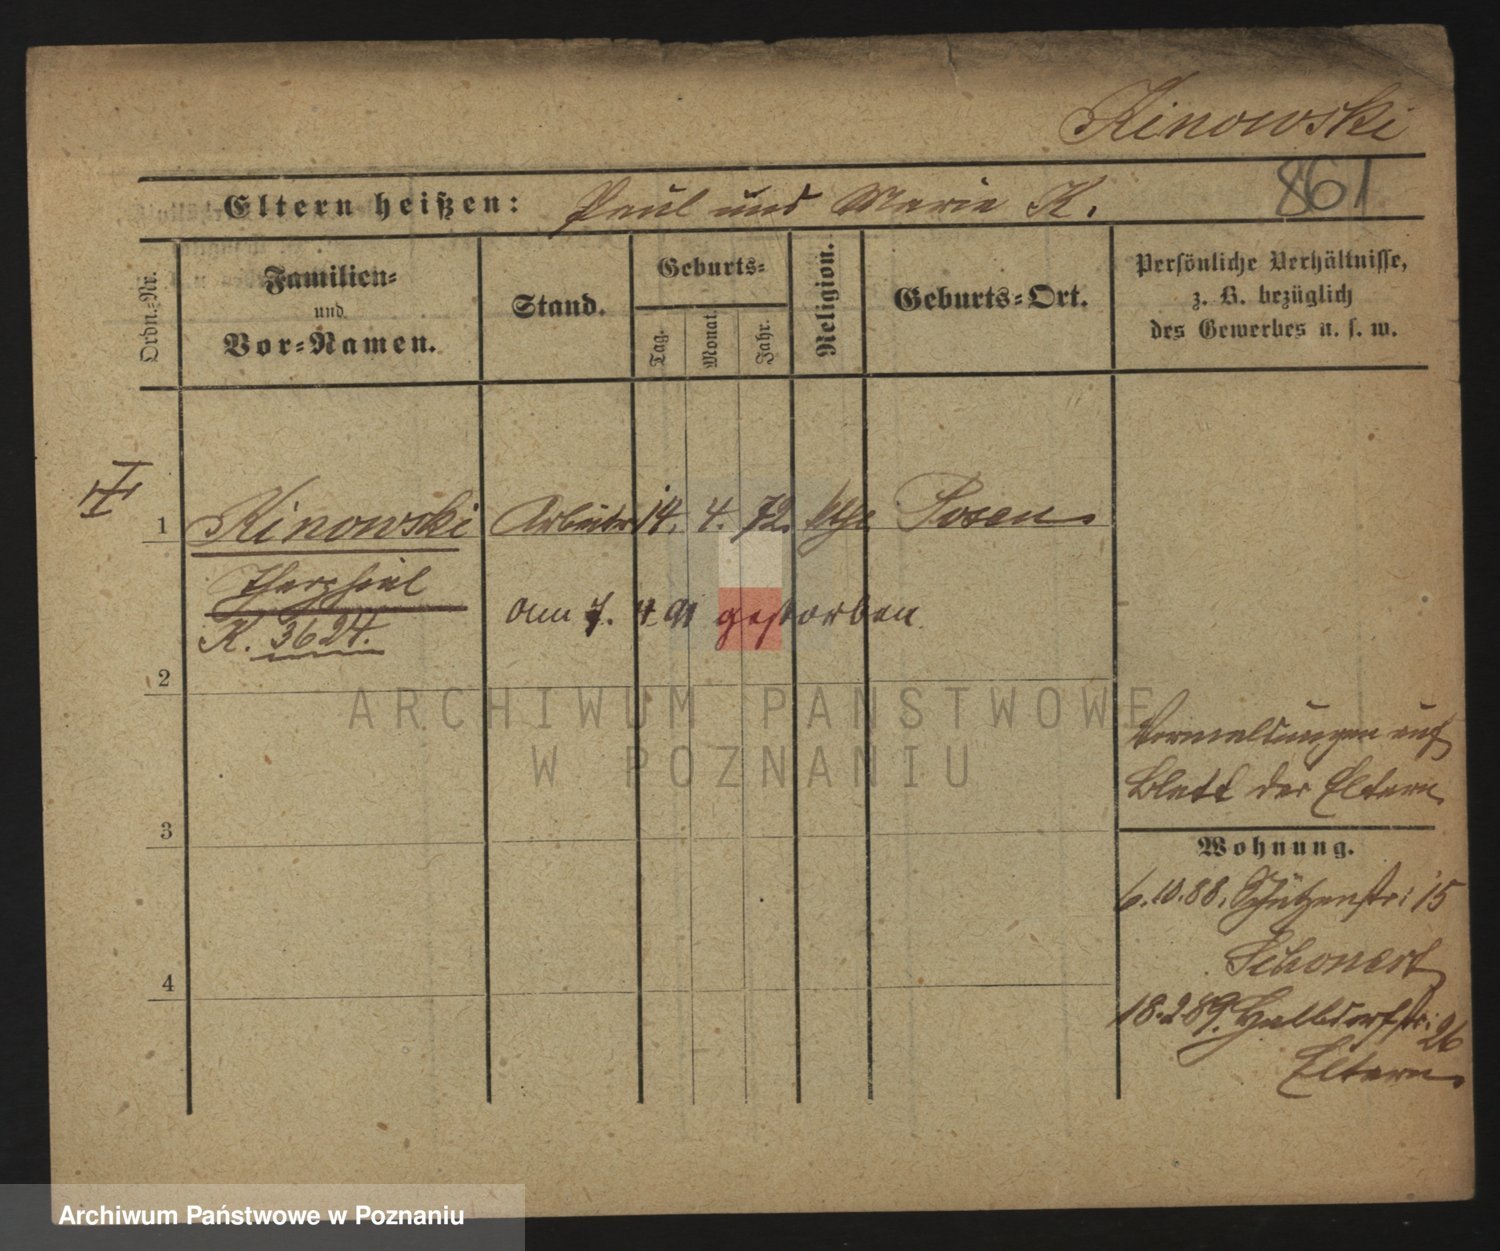 Kinowski
861
Eltern heißen: Paul und Marie K.
Ordn.-Nr.
Familien- und Vor-Namen.
Stand.
Geburts-
Tag.
Monat.
Jahr.
Religion.
Geburts-Ort.
Persönliche Verhältnisse,
z. B. bezüglich
des Gewerbes u. s. w.
1 Kinowski Arbeiter 14. 4. 72. kth Posen
K. 3624.
am 7. 4. 91 gestorben
2
3
4
Vermeldungen auf
Blatt der Eltern
Wohnung.
6.10.88. Schützenstr: 15
18.2.89. Halbdorfstr: 26
Eltern
ARCHIWUM PAŃSTWOWE
W POZNANIU
Archiwum Państwowe w Poznaniu